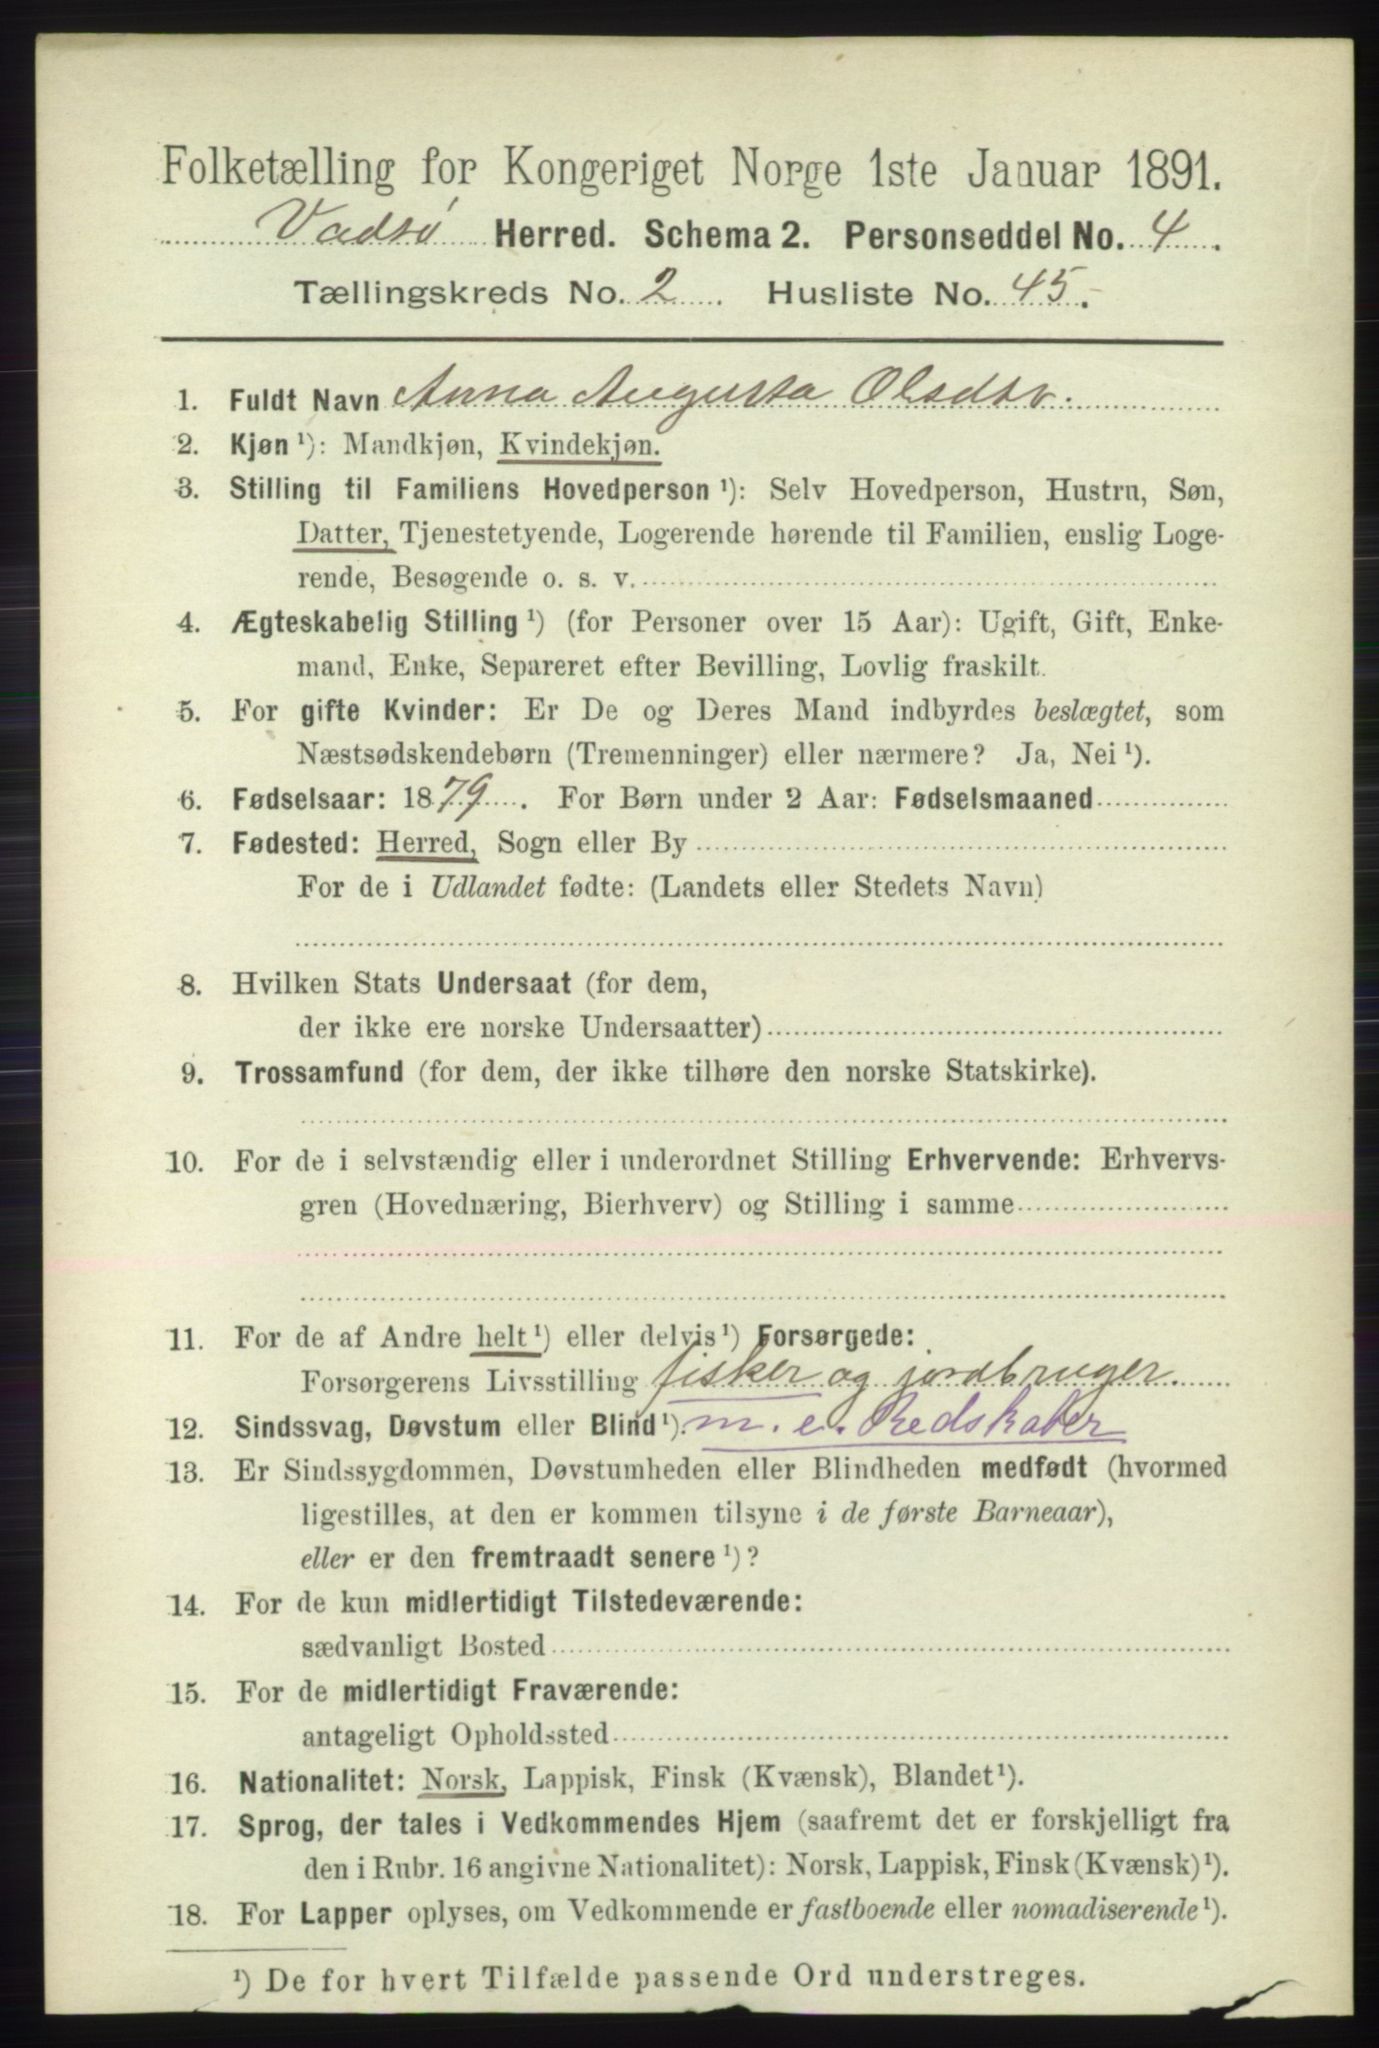 Folketælling for Kongeriget Norge 1ste Januar 1891.
Vadsø Herred. Schema 2. Personseddel No. 4.
Tællingskreds No. 2 Husliste No. 45.
1. Fuldt Navn Anna Augusta Olsdtr.
2. Kjøn ¹): Mandkjøn, Kvindekjøn.
3. Stilling til Familiens Hovedperson ¹): Selv Hovedperson, Hustru, Søn,
Datter, Tjenestetyende, Logerende hørende til Familien, enslig Loge-
rende, Besøgende o. s. v.
4. Ægteskabelig Stilling ¹) (for Personer over 15 Aar): Ugift, Gift, Enke-
mand, Enke, Separeret efter Bevilling, Lovlig fraskilt.
5. For gifte Kvinder: Er De og Deres Mand indbyrdes beslægtet, som
Næstsødskendebørn (Tremenninger) eller nærmere? Ja, Nei ¹).
6. Fødselsaar: 1879. For Børn under 2 Aar: Fødselsmaaned
7. Fødested: Herred, Sogn eller By
For de i Udlandet fødte: (Landets eller Stedets Navn)
8. Hvilken Stats Undersaat (for dem,
der ikke ere norske Undersaatter)
9. Trossamfund (for dem, der ikke tilhøre den norske Statskirke).
10. For de i selvstændig eller i underordnet Stilling Erhvervende: Erhvervs-
gren (Hovednæring, Bierhverv) og Stilling i samme
11. For de af Andre helt ¹) eller delvis ¹) Forsørgede:
Forsørgerens Livsstilling fisker og jordbruger.
12. Sindssvag, Døvstum eller Blind ¹). m. e. Redskaber
13. Er Sindssygdommen, Døvstumheden eller Blindheden medfødt (hvormed
ligestilles, at den er kommen tilsyne i de første Barneaar),
eller er den fremtraadt senere ¹)?
14. For de kun midlertidigt Tilstedeværende:
sædvanligt Bosted
15. For de midlertidigt Fraværende:
antageligt Opholdssted
16. Nationalitet: Norsk, Lappisk, Finsk (Kvænsk), Blandet ¹).
17. Sprog, der tales i Vedkommendes Hjem (saafremt det er forskjelligt fra
den i Rubr. 16 angivne Nationalitet): Norsk, Lappisk, Finsk (Kvænsk) ¹).
18. For Lapper oplyses, om Vedkommende er fastboende eller nomadiserende ¹).
¹) De for hvert Tilfælde passende Ord understreges.